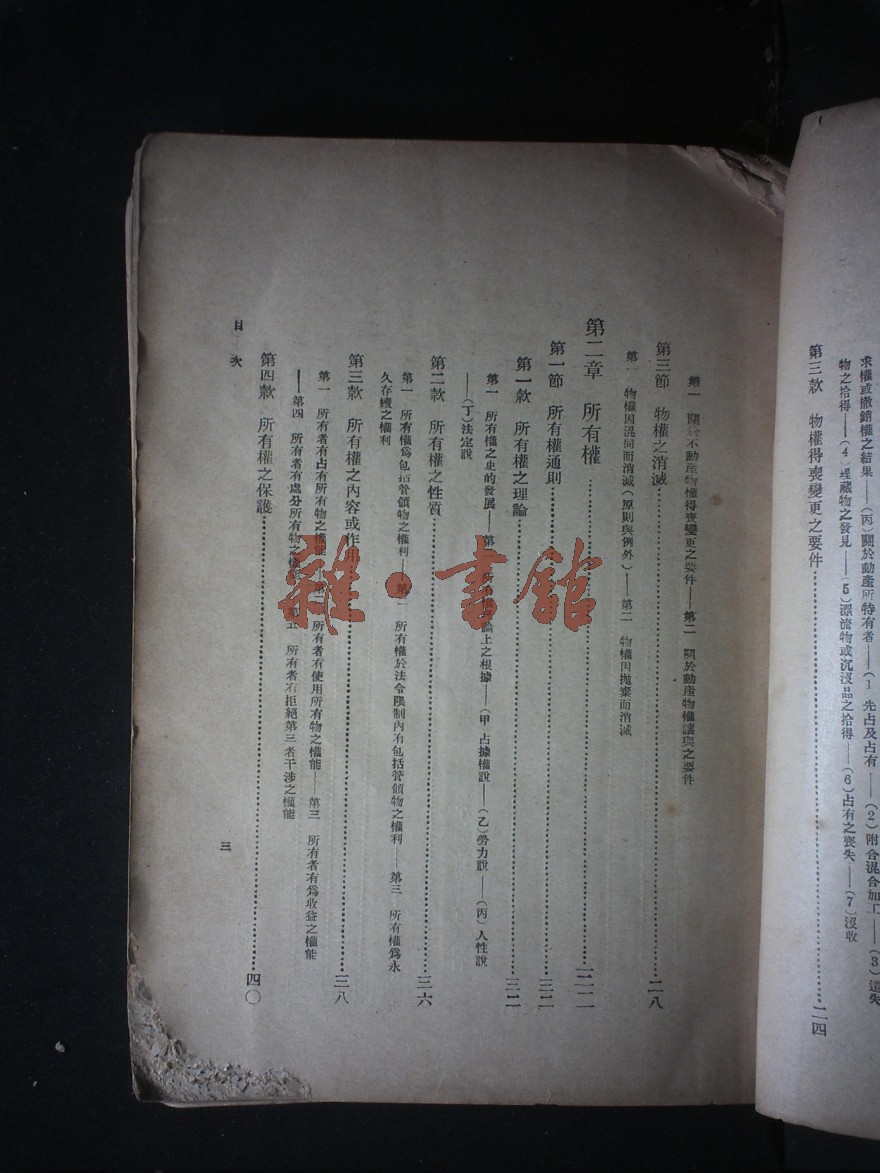 求權或撤銷權之結果——(丙)關於動產所特有者——(1 先占及占有——(2)附合混合加工——(3)遺失
物之拾得——(4)埋藏物之發見——(5)漂流物或沉沒品之拾得——(6)占有之喪失——(7)沒收
第三款 物權得喪變更之要件……二四
第一 關於不動產物權得喪變更之要件——第二 關於動產物權讓與之要件
第三節 物權之消滅……二八
第一 物權因混同而消滅(原則與例外)——第二 物權因拋棄而消滅
第二章 所有權……三二
第一節 所有權通則……三二
第一款 所有權之理論……三二
第一 所有權之史的發展——第二 所論上之根據——(甲 占據權說——(乙)勞力說——(丙)人性說
——(丁)法定說
第二款 所有權之性質……三六
第一 所有權為包括管領物之權利——第二 所有權於法令限制內有包括管領物之權利——第三 所有權為永
久存續之權利
第三款 所有權之內容或作用……三八
第一 所有者有占有所有物之權能——第二 所有者有使用所有物之權能——第三 所有者有為收益之權能
——第四 所有者有處分所有物之權 第五 所有者有拒絕第三者干涉之權能
第四款 所有權之保護……四〇
目次
三
雜·書館